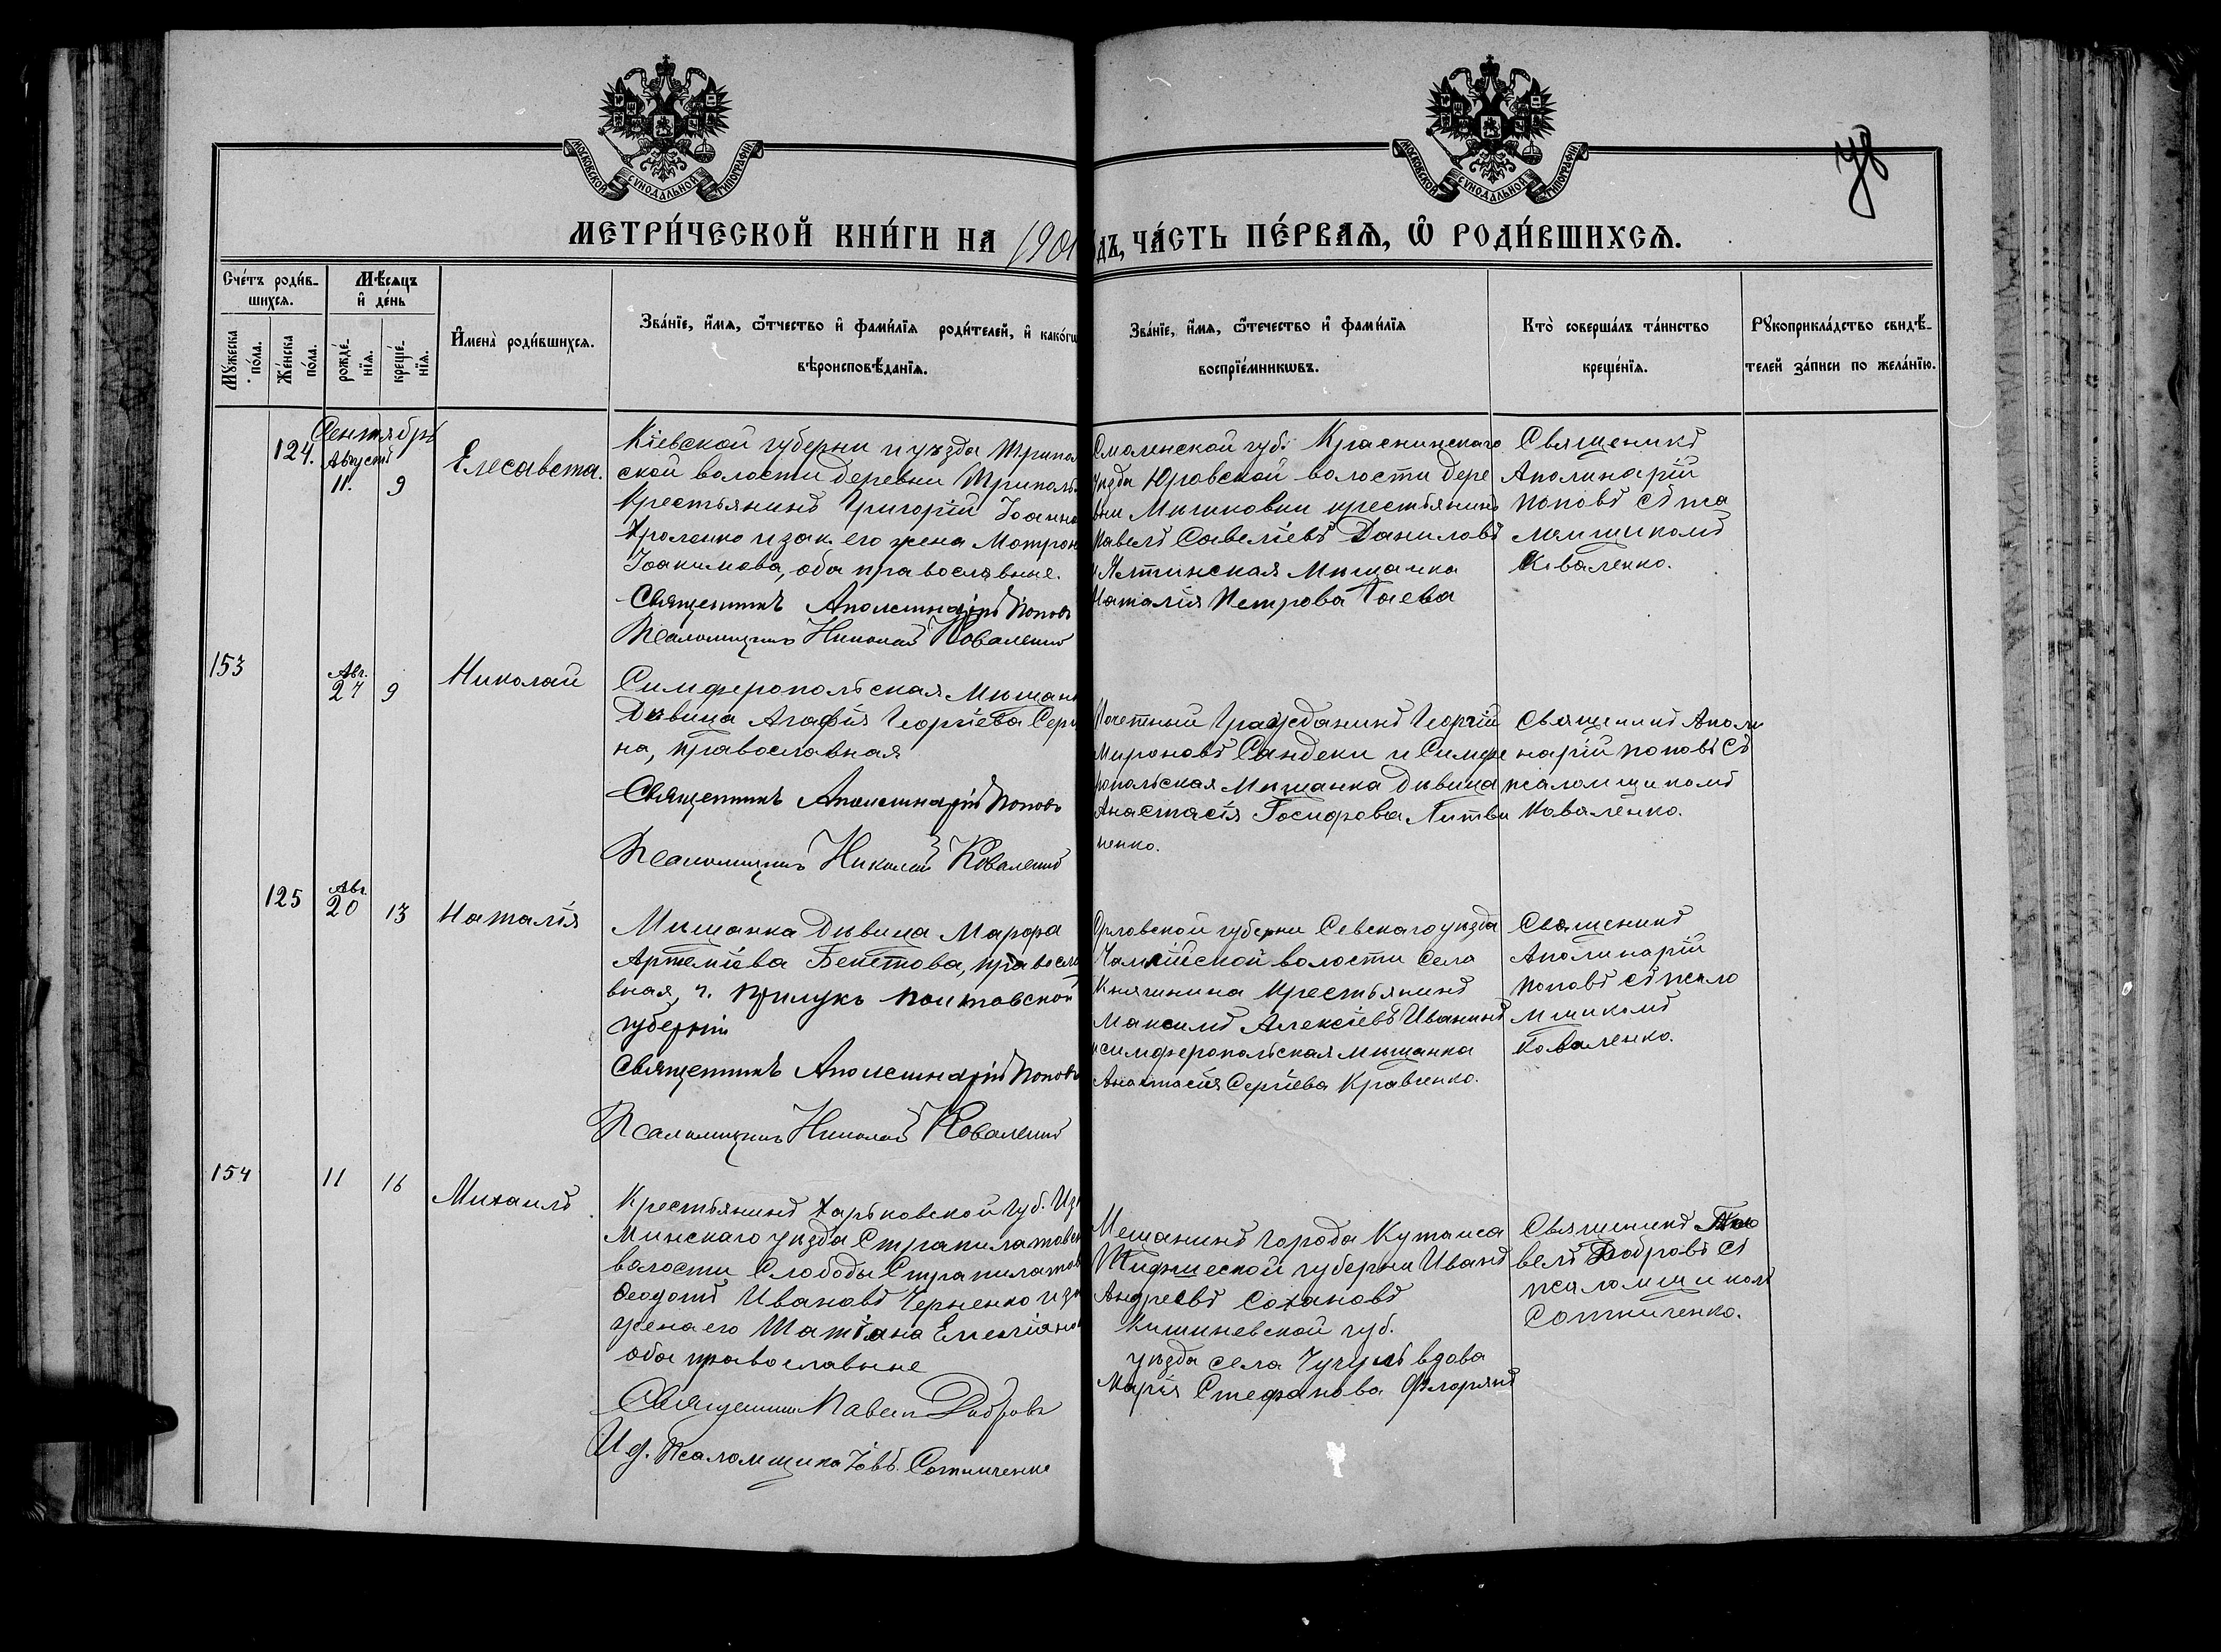 МОСКОВСКОЙ СѴНОДАЛЬНОЙ ТИПОГРАФІИ
МОСКОВСКОЙ СѴНОДАЛЬНОЙ ТИПОГРАФІИ
МЕТРИ́ЧЕСКОЙ КНИ́ГИ НА 1901
дъ, ЧА́СТЬ ПЕ́РВАѦ, Ѽ РОДИ́ВШИХСѦ.
Сче́тъ роди́в-
шихсѧ.
Мѣ́сѧцъ
и҆ де́нь
Мꙋ́жеска
по́ла.
Же́нска
по́ла.
рожде́-
нїѧ.
креще́-
нїѧ.
И҆мена̀ роди́вшихсѧ.
Зва́нїе, и҆́мѧ, ѻ҆́тчество и҆ фами́лїѧ роди́телей, и҆ како́гѡ
вѣроисповѣ́данїѧ.
Зва́нїе, и҆́мѧ, ѻ҆те́чество и҆ фами́лїѧ
воспрїе́мникѡвъ.
Кто̀ соверша́лъ та́инство
креще́нїѧ.
Рꙋкоприкла́дство свидѣ́-
телей за́писи по жела́нїю.
124.
Сентябрь
Августъ
11. 9
Елисавета.
Кіевской губерни и уѣзда Трипол
ской волости деревни Триполь
крестьянинъ Григорій Іоанно
Хроленко и зак. его жена Матрон
Іоакимова, оба православные.
Священникъ Аполлинарій Поповъ
Псаломщикъ Николай Коваленко
Смоленской губ. Краснинскаго
уѣзда Юровской волости дере
вни крестьянинъ
Павелъ Савеліевъ Даниловъ
и Ялтинская Мѣщанка
Наталія Петрова Гаева
Священикъ
Аполинарій
Поповъ съ пса
ломщикомъ
Коваленко.
153
Авг.
27 9
Николай
Симферопольская Мѣщан
Дѣвица Агафія Георгіева Сер
на, православная
Священникъ Аполлинарій Поповъ
Псаломщикъ Николай Коваленко
Почетный Гражданинъ Георгій
Мироновъ Сандеки и Симфе
ропольская Мѣщанка Дѣвица
Анастасія Іосифова Литви
ненко.
Священикъ Аполи
нарій Поповъ съ
псаломщикомъ
Коваленко.
125
Авг.
20 13
Наталія
Мѣщанка Дѣвица Марфа
Артеміева Бекетова, правосла
вная, г. Прилукъ Полтавской
губерніи
Священникъ Аполлинарій Поповъ
Псаломщикъ Николай Коваленко
Орловской губерни Севскаго уѣзда
волости села
Княгинина крестьянинъ
Максимъ Алексіевъ Иванинъ
и симферопольская мѣщанка
Анастасія Сергіева Кравченко.
Священикъ
Аполинарій
Поповъ съ псало
мщикомъ
Коваленко.
154
11 16
Михаилъ
Крестьянинъ Харьковской губ. Изю
минскаго уѣзда Стратилатовск
волости Слободы Стратилатов
Феодотъ Ивановъ Черненко и зак
жена его Татіана Емеліяно
оба православные
Священникъ Павелъ Добровъ
И. д. Псаломщика Іовъ Сотниченко
Мещанинъ города Кутаиса
Тифлиской губерни Иванъ
Андреевъ Сохановъ
Кишиневской губ.
уѣзда села вдова
Марія Стефанова Флорянъ
Священикъ Па
велъ Добровъ съ
псаломщиком
Сотниченко.